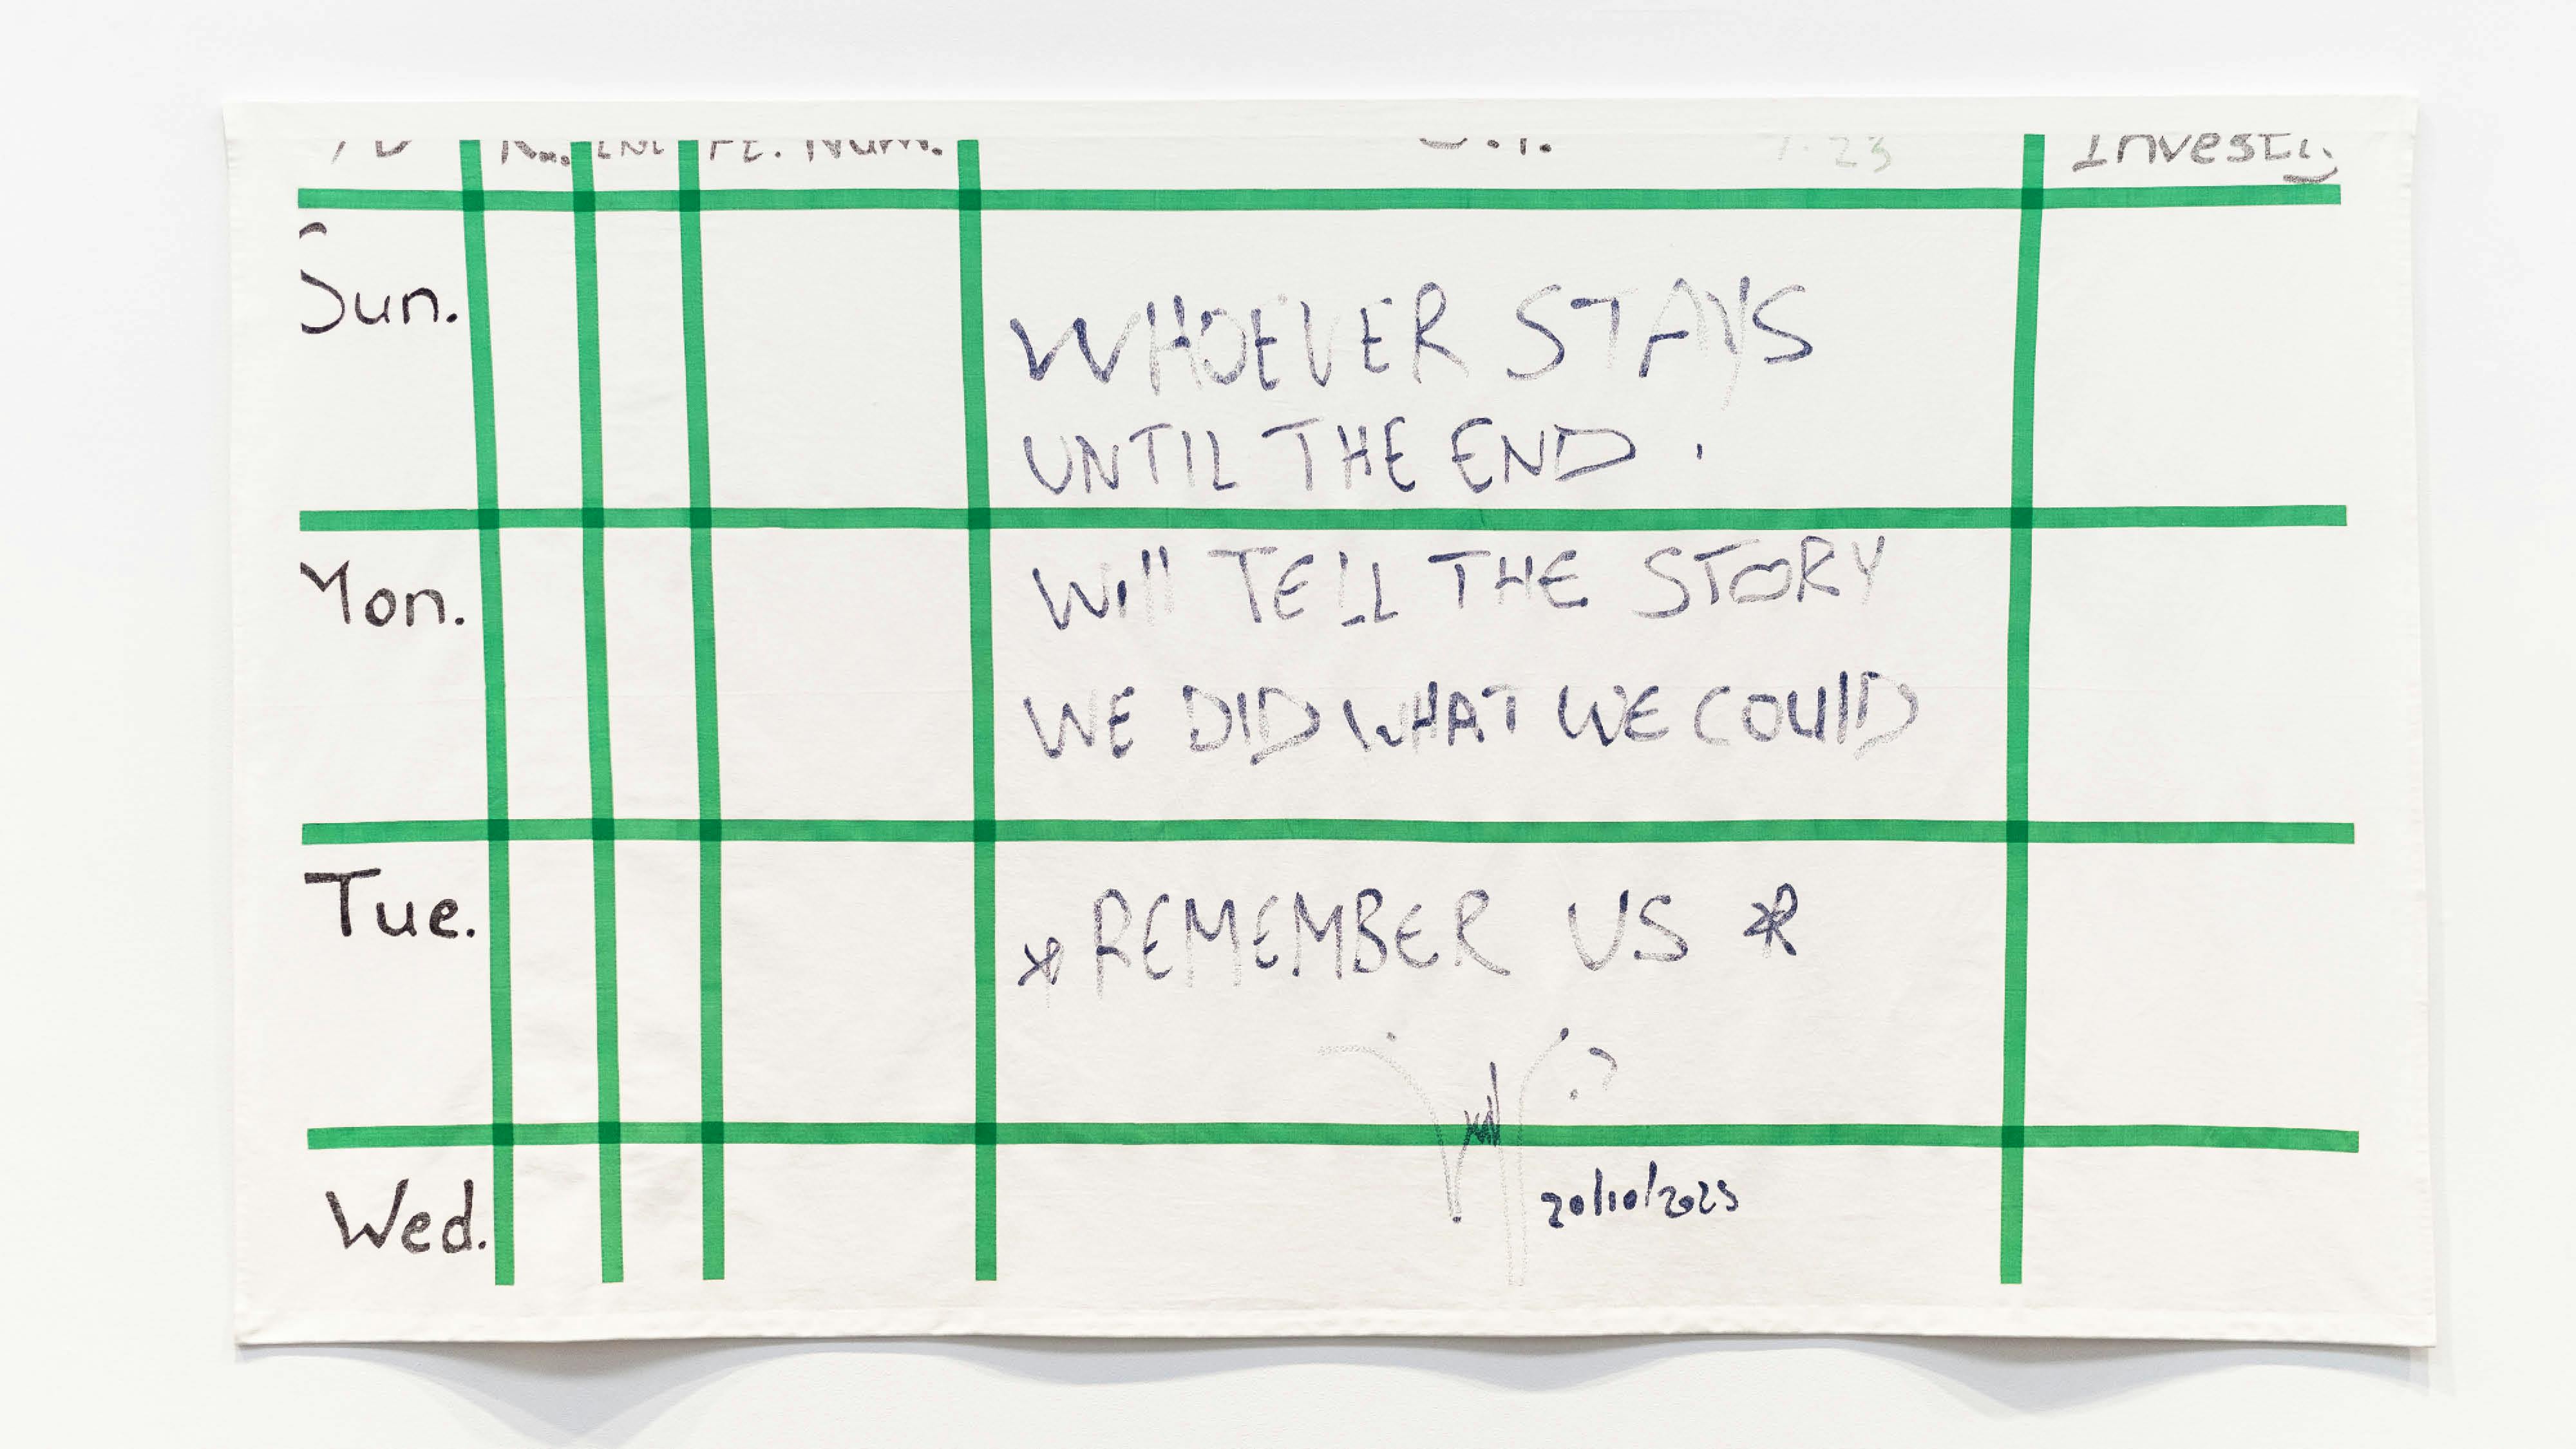 Num.
23
Investi.
Sun.
WHOEVER STAYS
UNTIL THE END.
Mon.
Will TELL THE STORY
WE DID WHAT WE COUlD
Tue.
*REMEMBER US *
20/10/2023
Wed.